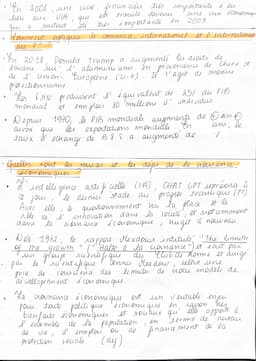 En 2008, une crise financière très importante a eu
lieu aux USA, qui est ensuite devenue une crise économique
qui a suscité de très importants en 2009.
Comment expliquer le commerce international et l'internationalisation
des
En 2018, Donald Trump a augmenté les droits de
douanes sur l'aluminium en provenance de Chine et
de l'Union Européenne (U.E). Il s'agit de mesures
protectionnisme.
Les FMN produisent l'équivalent de 25% du PIB
mondial et emploi 80 millions d'individus
Depuis 1970, le PIB mondial augmente de
ainsi que les exportations mondiales. En ans, le
taux d'échange de B & S a augmenté de
Quelles sont les sources et les défis de la croissance
économique
L'intelligence artificielle (IA), CHAT GPT représente à
ce jour le dernier stade du progrès technique (PT)
Avec elle le questionnement sur la place et le
rôle de l'innovation dans la société, et notamment
dans la croissance économique, surgit à nouveau.
Dès 1972, le rapport Meadow intitulé "The Limits
of the growth" ("Halte à la croissance") et écrit par
un groupe scientifique du Club de Rome et dirigé
par le scientifique Dennis Meadow, relève une
prise de conscience des limites de notre modèle de
développement économique.
La croissance économique est un véritable enjeu
pour toute politique économique en raison des
bienfaits économiques et sociaux qu'elle apporte à
l'ensemble de la population, en termes de niveau
de vie, d'emploi ou de financement de la
protection sociale.